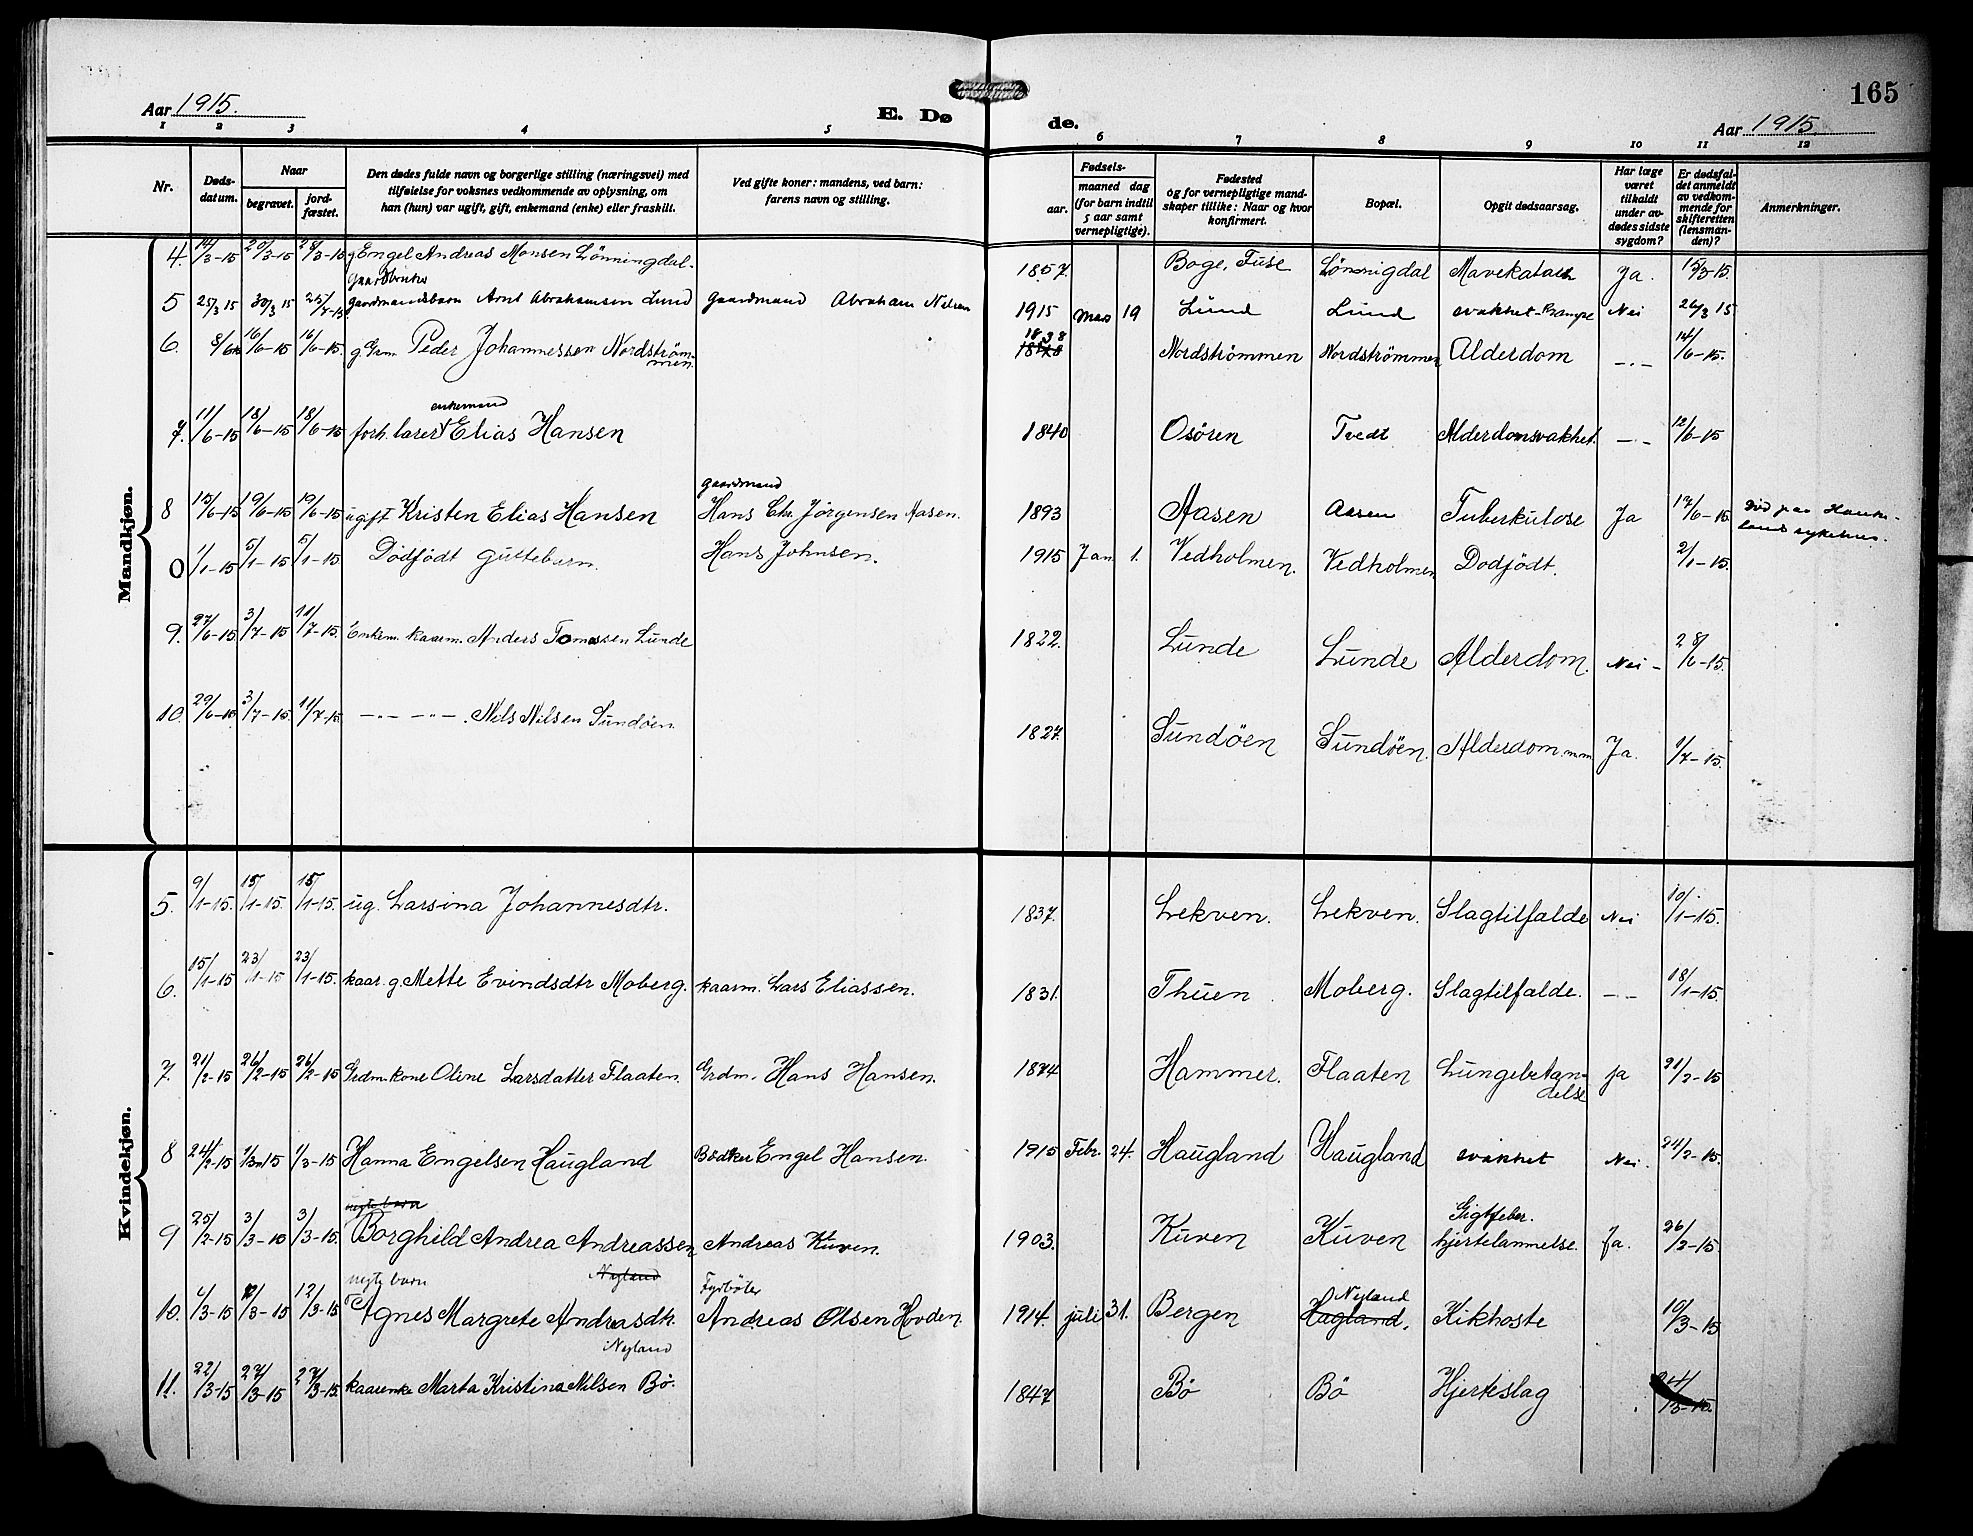 165
Aar 1915.
E. Dø de.
Aar 1915.
1 2 3 4 5 6 7 8 9 10 11 12
Nr.
Døds-datum.
Naar
begravet.
jord-fæstet.
Den dødes fulde navn og borgerlige stilling (næringsvei) med
tilføielse for voksnes vedkommende av oplysning, om
han (hun) var ugift, gift, enkemand (enke) eller fraskilt.
Ved gifte koner: mandens, ved barn:
farens navn og stilling.
Fødsels-
aar.
maaned dag
(for barn indtil
5 aar samt
vernepligtige).
Fødested
og for vernepligtige mand-
skaper tillike: Naar og hvor
konfirmert.
Bopæl.
Opgit dødsaarsag.
Har læge
været
tilkaldt
under av-
dødes sidste
sygdom?
Er dødsfal-
det anmeldt
av vedkom-
mende for
skifteretten
(lensman-
den)?
Anmerkninger.
Mandkjøn.
4. 14/3-15 20/3-15 28/3-15 g Engel Andreas Monsen Lönningdal. 1857. Boge, Fuse Lönningdal Mavekatarr Ja. 15/3-15.
gaardbruker
5 25/3 15 30/3 15 25/4-15 gaardmandsbarn Arnt Abrahamsen Lund gaardmand Abraham Nilsen 1915 Mars 19 Lund Lund svakhet-krampe Nei 26/3 15
6. 8/6 16/6-15 16/6-15. g. Grm Peder Johannessen Nordström- 1838 Nordströmmen Nordströmmen Alderdom -"- 14/6-15.
men.
enkemand
7. 11/6-15 18/6-15 18/6-15 forh. lærer Elias Hansen 1840 Osören Tvedt Alderdomsvakhet. -"- 12/6-15
gaardmand
8 15/6-15 19/6-15 19/6-15 ugift Kristen Elias Hansen Hans Chr. Jörgensen Aasen. 1893 Aasen Aasen Tuberkulose Ja 17/6-15. Död paa Hauke-
lands sykehus.
0 1/1-15 5/1-15 5/1-15. Dödfödt guttebarn. Hans Johnsen. 1915 Jan 1. Vedholmen. Vedholmen Dödfödt. 2/1-15.
9. 27/6-15 3/7-15 11/7-15. Enkem. kaarm. Anders Tomassen Lunde 1822. Lunde Lunde Alderdom. Nei - 28/6-15.
10. 29/6-15 3/7-15. 11/7-15. -"- -"-. Nils Nilsen Sundöen. 1827. Sundöen Sundöen. Alderdom m.m Ja. 1/7-15.
Kvindekjøn.
5. 9/1-15. 15/1-15. 15/1-15. ug. Larsina Johannesdtr. 1837. Lekven. Lekven. Slagtilfælde Nei 10/1-15.
6. 15/1-15 23/1-15 23/1-15. kaar. g. Mette Evindsdtr Moberg. kaarm. Lars Eliassen. 1831. Thuen Moberg. Slagtilfælde. -"- 18/1-15.
7. 21/2-15 26/2-15 26/2-15 Grdm. kone Oline Larsdatter Flaaten. Grdm. Hans Hansen. 1874 Hammer. Flaaten Lungebetæn- ja 21/2-15
delse
8 24/2-15 1/3-15 1/3-15 Hanna Engelsen Haugland Bødker Engel Hansen. 1915 Febr. 24. Haugland Haugland svakhet Nei. 24/2-15.
Gigtfeber.
9 25/2-15 3/3-15 3/3-15. Borghild Andrea Andreassen Andreas Kuven. 1903. Kuven Kuven hjertelammelse. Ja. 26/2-15.
uegte barn Nyland Fyrböter Nyland
10. 4/3-15 12/3-15 12/3-15 Agnes Margrete Andreasdtr. Andreas Olsen Hovden. 1914. juli 31. Bergen Hagland. Kikhoste 10/3-15
Nyland
11. 22/3-15 27/3-15 27/3-15 kaarenke Marta Kristina Nilsen Bö. 1847 Bö Bö Hjerteslag 24/3-15.